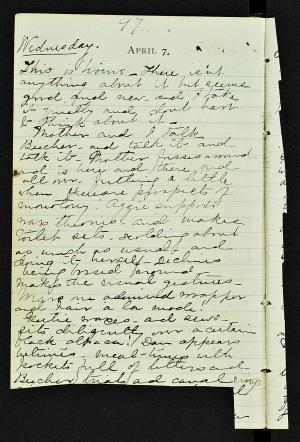 97.
Wednesday. APRIL 7.
This is home - There isn't
anything about it but seems
good and new and I take
it quietly and don't have
to think about it -
Mother and I talk
Beecher and talk it and
talk it - Mother fusses around
and is here and there and
all over putting a little
when there are prospects of
monotony. Aggie supports
and makes
toilet sets. scolding about
as much as usual and
doing by herself declines
being bossed around
makes the usual gestures -
me admired wrapper
and hair a la mode.
Gertie and sews
sits diligently on a certain
black alpaca. Dan appears
betimes - meal-times with
pockets full of letters and
Beecher trials and